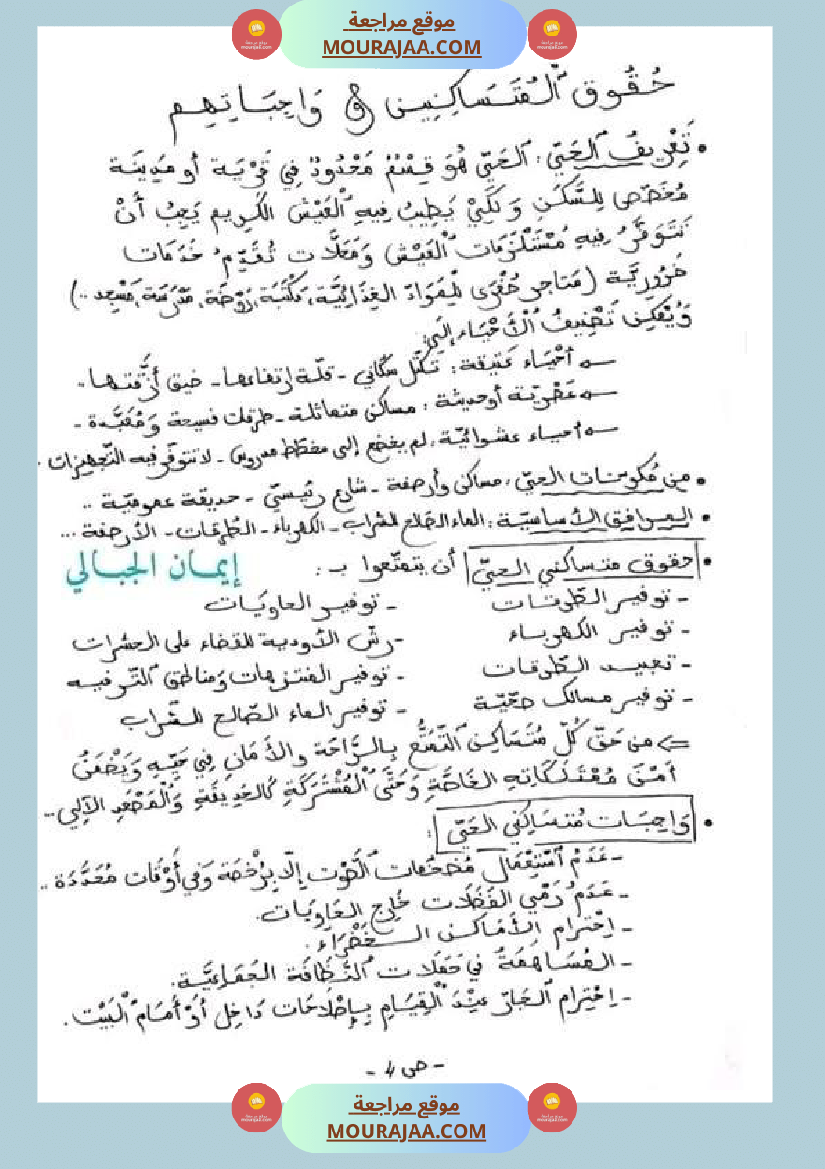 موقع مراجعة
MOURAJAA.COM
حُقُوق الْمُتَسَاكِنِين و وَاجِبَاتِهِم
• تَعْرِيفُ الحَيّ : الحَيّ هُوَ قِسْمٌ مَحْدُودٌ فِي قَرْيَة أو مَدِينَة
مُخَصّص لِلسَّكَنِ وَ لِكَيْ يَطِيبُ فِيهِ الْعَيْش الكَرِيم يَجِبُ أَنْ
تَتَوَفَّرُ فِيهِ مُسْتَلْزَمَات الْعَيْش وَ مَحَلَّات تُقَدِّمُ خَدَمَات
ضَرُورِيَّة (مَتَاجِر كُبْرَى لِلْمَوَادّ الغِذَائِيَّة، مَكْتَبَة، رَوْضَة، مَدْرَسَة، مَسْجِد ..)
وَ يُمْكِن تَصْنِيفُ الأَحْيَاء إِلَى:
أَحْيَاء عَتِيقَة : تَكَتّل سكّاني - قلّة ارتفاعها - ضيق أزقّتها .
عَصْرِيّة أو حديثة : مساكن متماثلة - طرقات فسيحة وَ مُعَبَّدة .
أحياء عشوائيّة : لم يخضع إلى مخطّط مدروس - لا تتوفّر فيه التّجهيزات .
• مِن مُكَوِّنَات الحيّ : مساكن وأرصفة - شارع رئيسيّ - حديقة عموميّة ..
• المرافق الأساسيّة : الماء الصّالح للشّراب - الكهرباء - الطّرقات - الأرصفة ...
• حقوق متساكني الحيّ أن يتمتّعوا بـ :
إيمان الجبالي
- توفير الطّرقات
- توفير الحاويات
- توفير الكهرباء
- رشّ الأدوية للقضاء على الحشرات
- تعبيد الطّرقات
- توفير المنتزهات وَ مناطق التّرفيه
- توفير مسالك صحّيّة
- توفير الماء الصّالح للشّراب
⇐ من حَقّ كُلّ مُتَسَاكِن التَّمَتُّع بِالرَّاحَة و الأَمَان فِي حَيِّهِ وَ يَضْمَنُ
أَمْنَ مُمْتَلَكَاتِهِ الخَاصَّة وَ حَتَّى الْمُشْتَرَكَة كَالحَدِيقَةِ وَ الْمَصْعَدِ الآلِي ..
• وَاجِبَات مُتَسَاكِنِي الحَيّ :
- عَدَمُ اسْتِعْمَال مُضَخِّمَات الصَّوْت إِلّا بِرُخْصَة وَ فِي أَوْقَات مُحَدَّدَة ..
- عَدَمُ رَمْيِ الفَضَلَات خَارِج الحَاوِيَات.
- اِحْتِرَام الأَمَاكِن الخَضْرَاء .
- المُسَاهَمَةُ فِي حَمَلَات النَّظَافَة الجَمَاعِيَّة.
- اِحْتِرَام الجَار عِنْدَ القِيَامِ بِإِصْلَاحَات دَاخِل أَوْ أَمَامَ الْبَيْت .
- ص 4 -
موقع مراجعة
MOURAJAA.COM